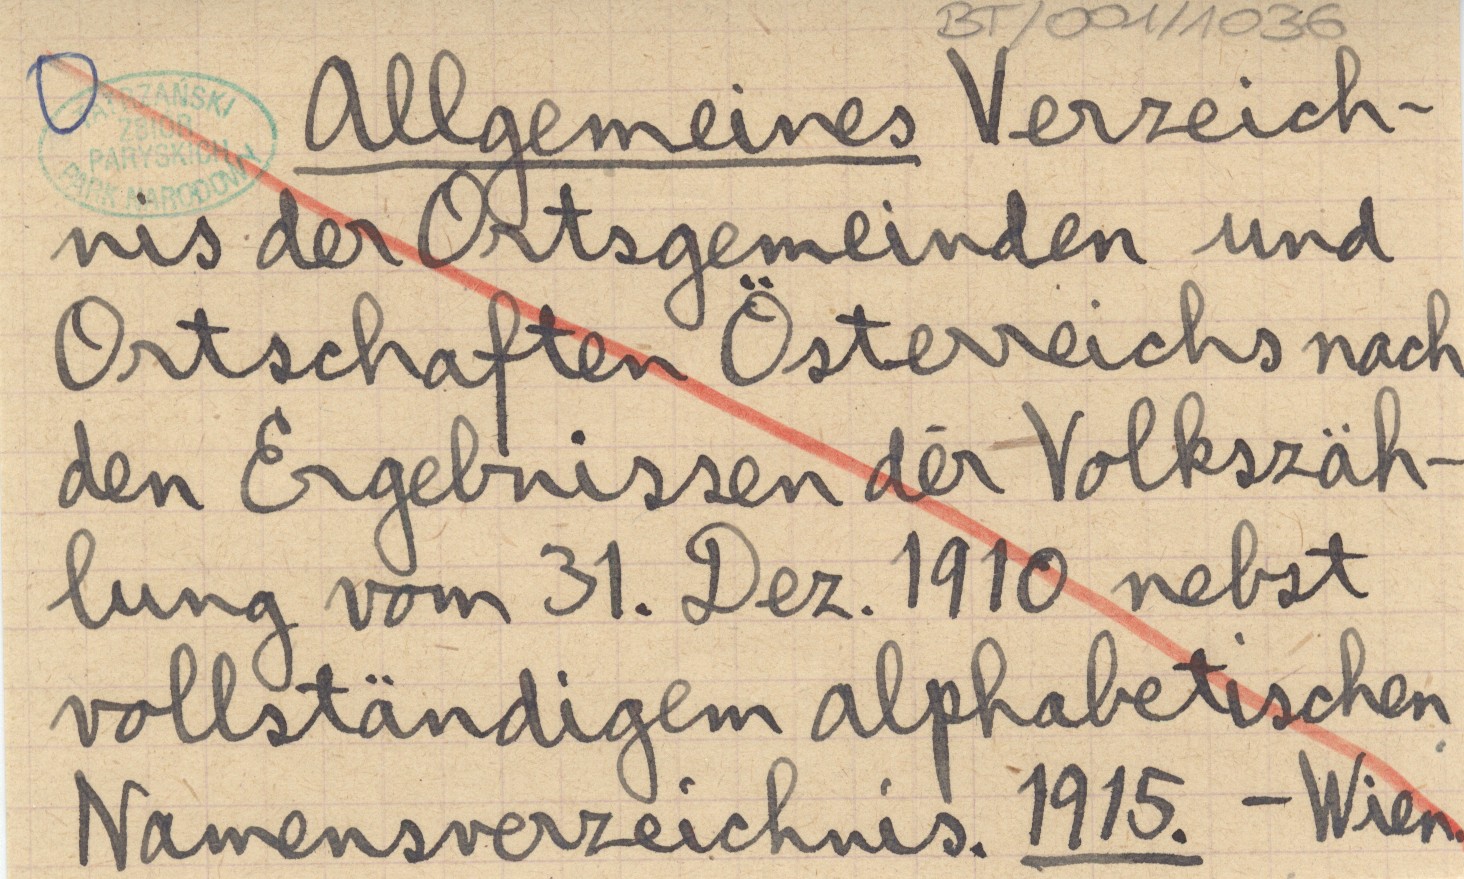 BT/001/1036
TATRZAŃSKI
ZBIÓR
PARYSKICH
PARK NARODOWY
Allgemeines Verzeich-
nis der Ortsgemeinden und
Ortschaften Österreichs nach
den Ergebnissen der Volkszäh-
lung vom 31. Dez. 1910 nebst
vollständigem alphabetischen
Namensverzeichnis. 1915. - Wien.